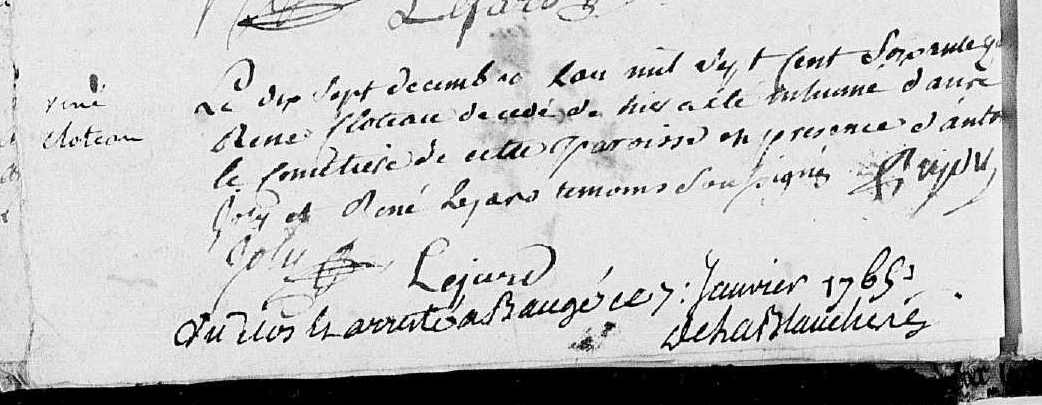 Lejard
rené
cloteau
Le dix sept decembre lan mil sept cent soixante q
René Cloteau decedé de hier a été inhumé dans
le cimetiere de cette paroisse en presence d'anto
Joly et René Lejard temoins soussignés
Joly
Lejard
Vu clos et arresté a Baugé ce 7: Janvier 1765
De la Blanchere